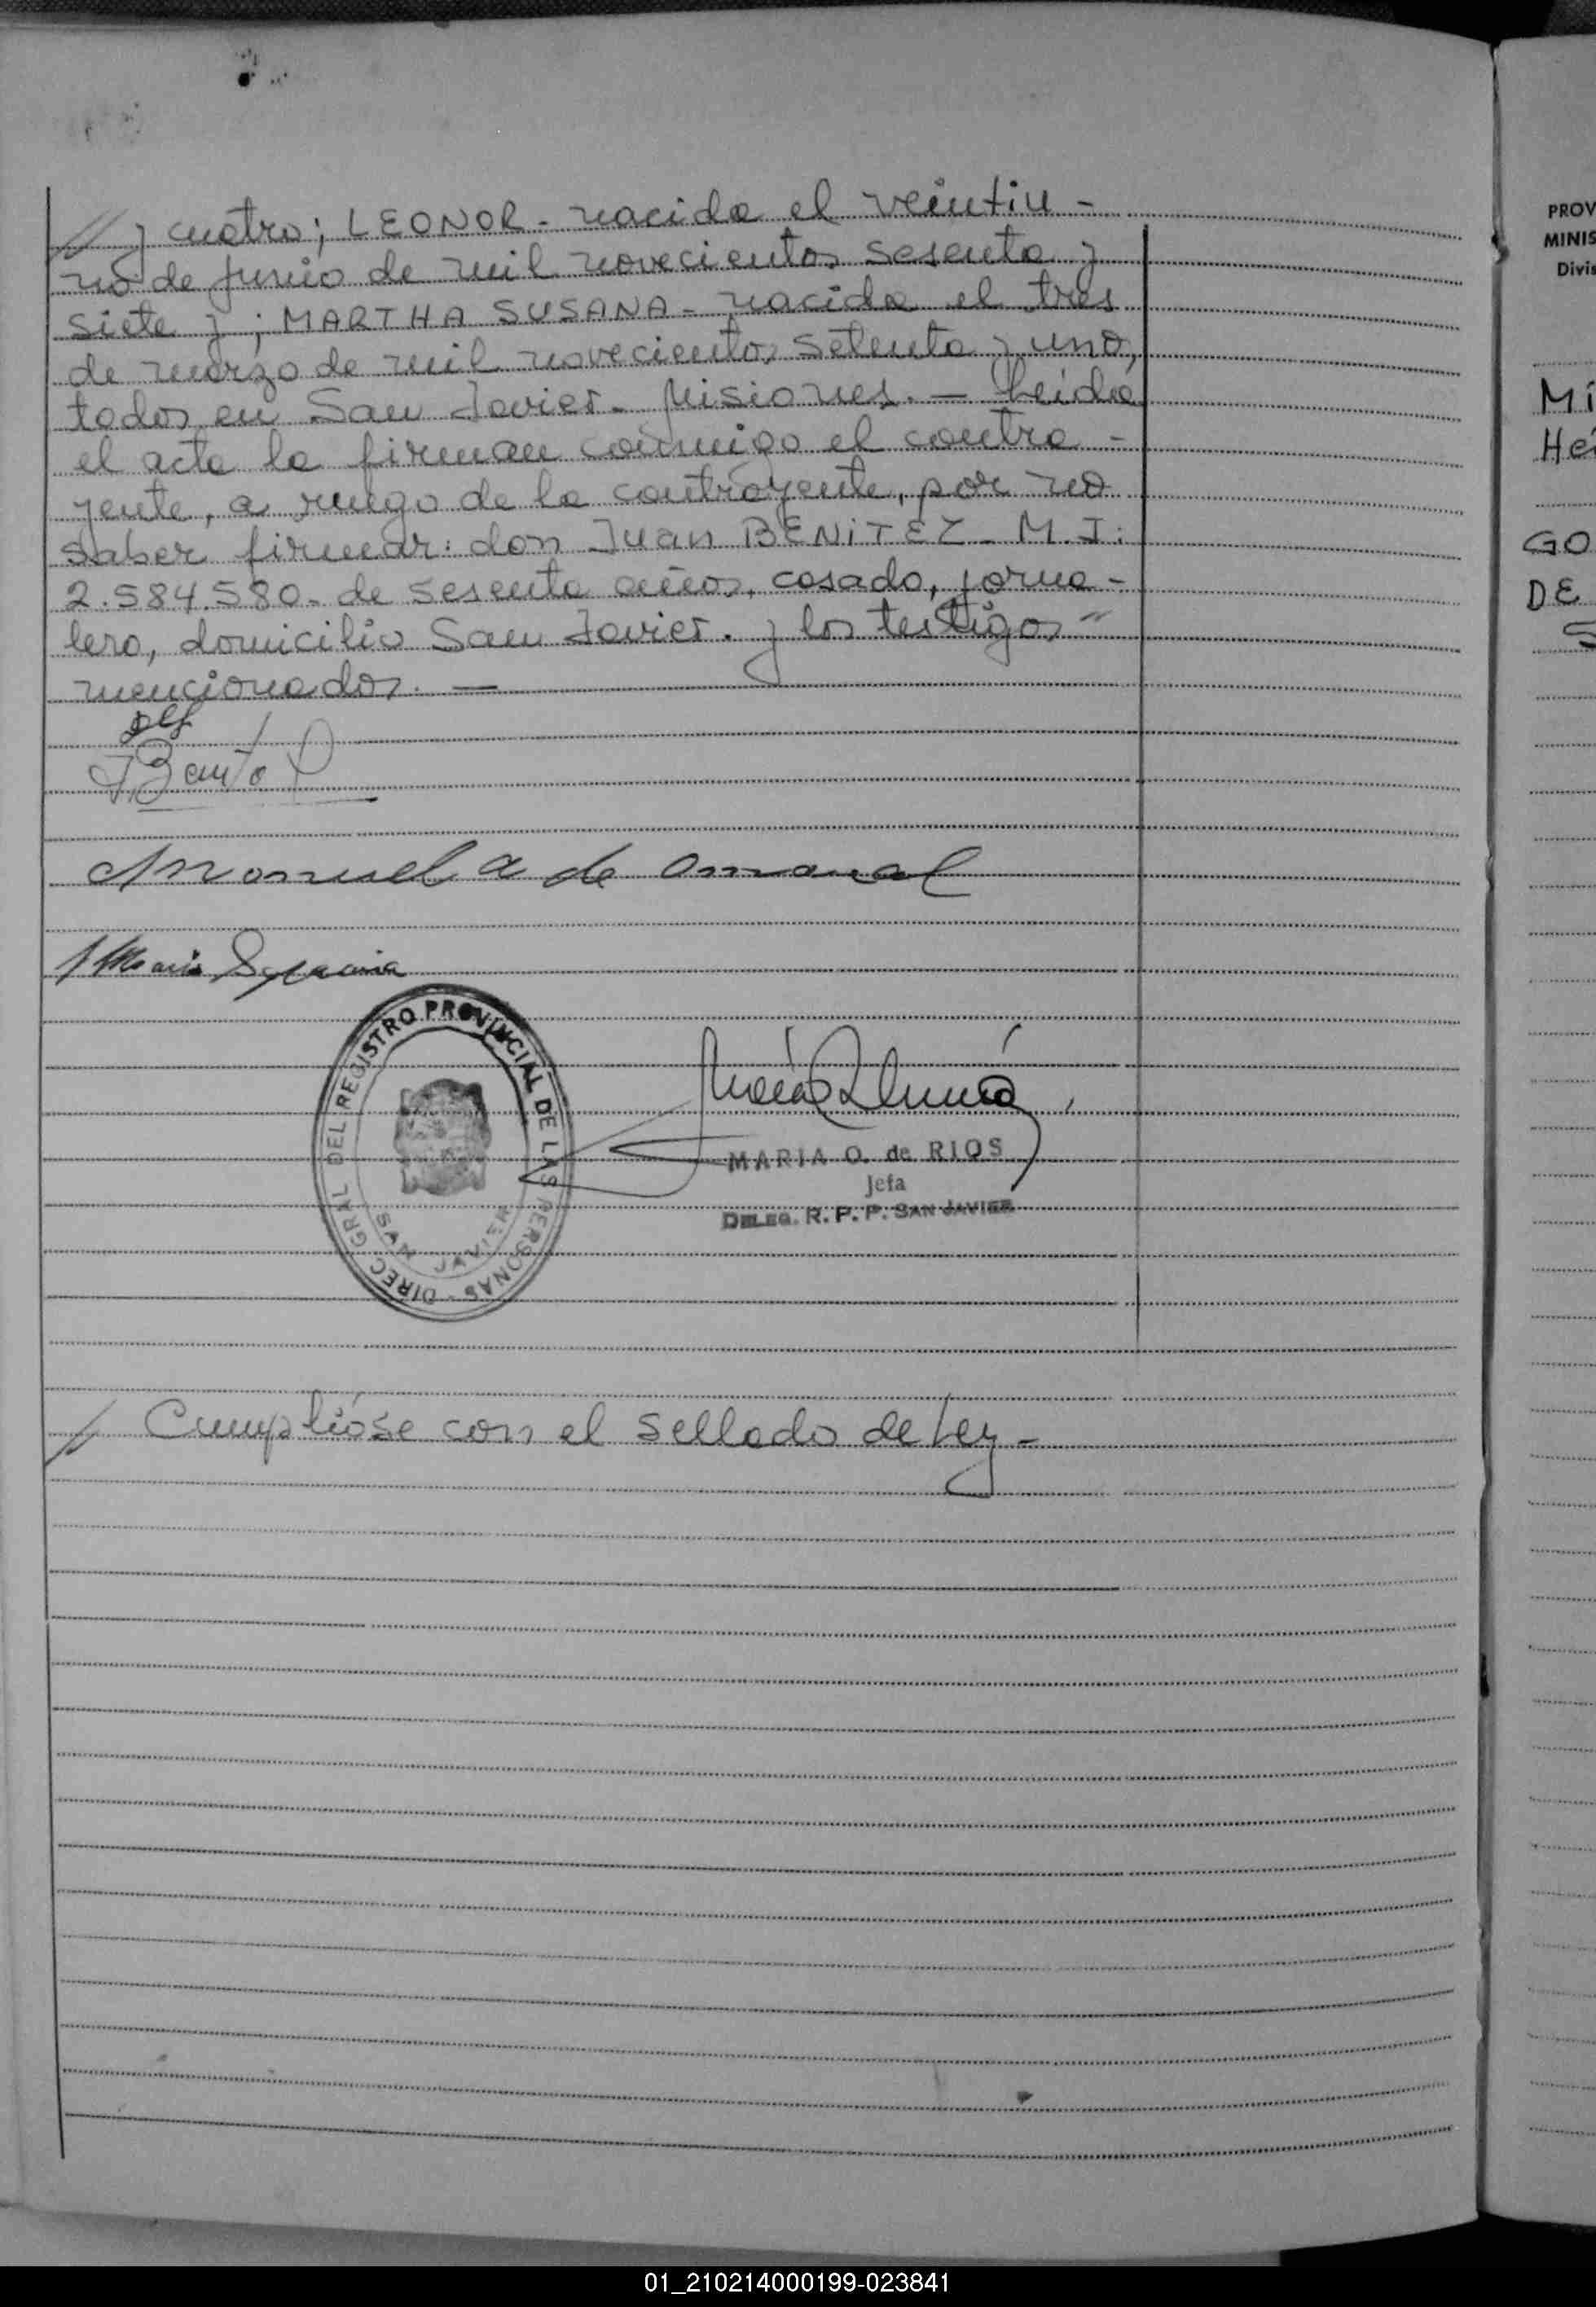 // y cuatro; LEONOR - nacida el veintiu -
no de junio de mil novecientos sesenta y
siete y ; MARTHA SUSANA - nacida el tres
de marzo de mil novecientos setenta y uno,
todos en San Javier - Misiones. — Leida
el acta la firman conmigo el contra -
yente, a ruego de la contrayente, por no
saber firmar: don Juan BENITEZ - M.I:
2.584.580 - de sesenta años, casado, jorna -
lero, domicilio San Javier. y los testigos
mencionados. —
Manuela a de Amaral
DIREC. GRAL DEL REGISTRO PROVINCIAL DE LAS PERSONAS -
SAN JAVIER
MARIA O. de RIOS
Jefa
DELEG. R. P. P. SAN JAVIER
// Cumplióse con el sellado de Ley -
PROV
MINIS
Divis
Mi
He
GO
DE
S
01_210214000199-023841